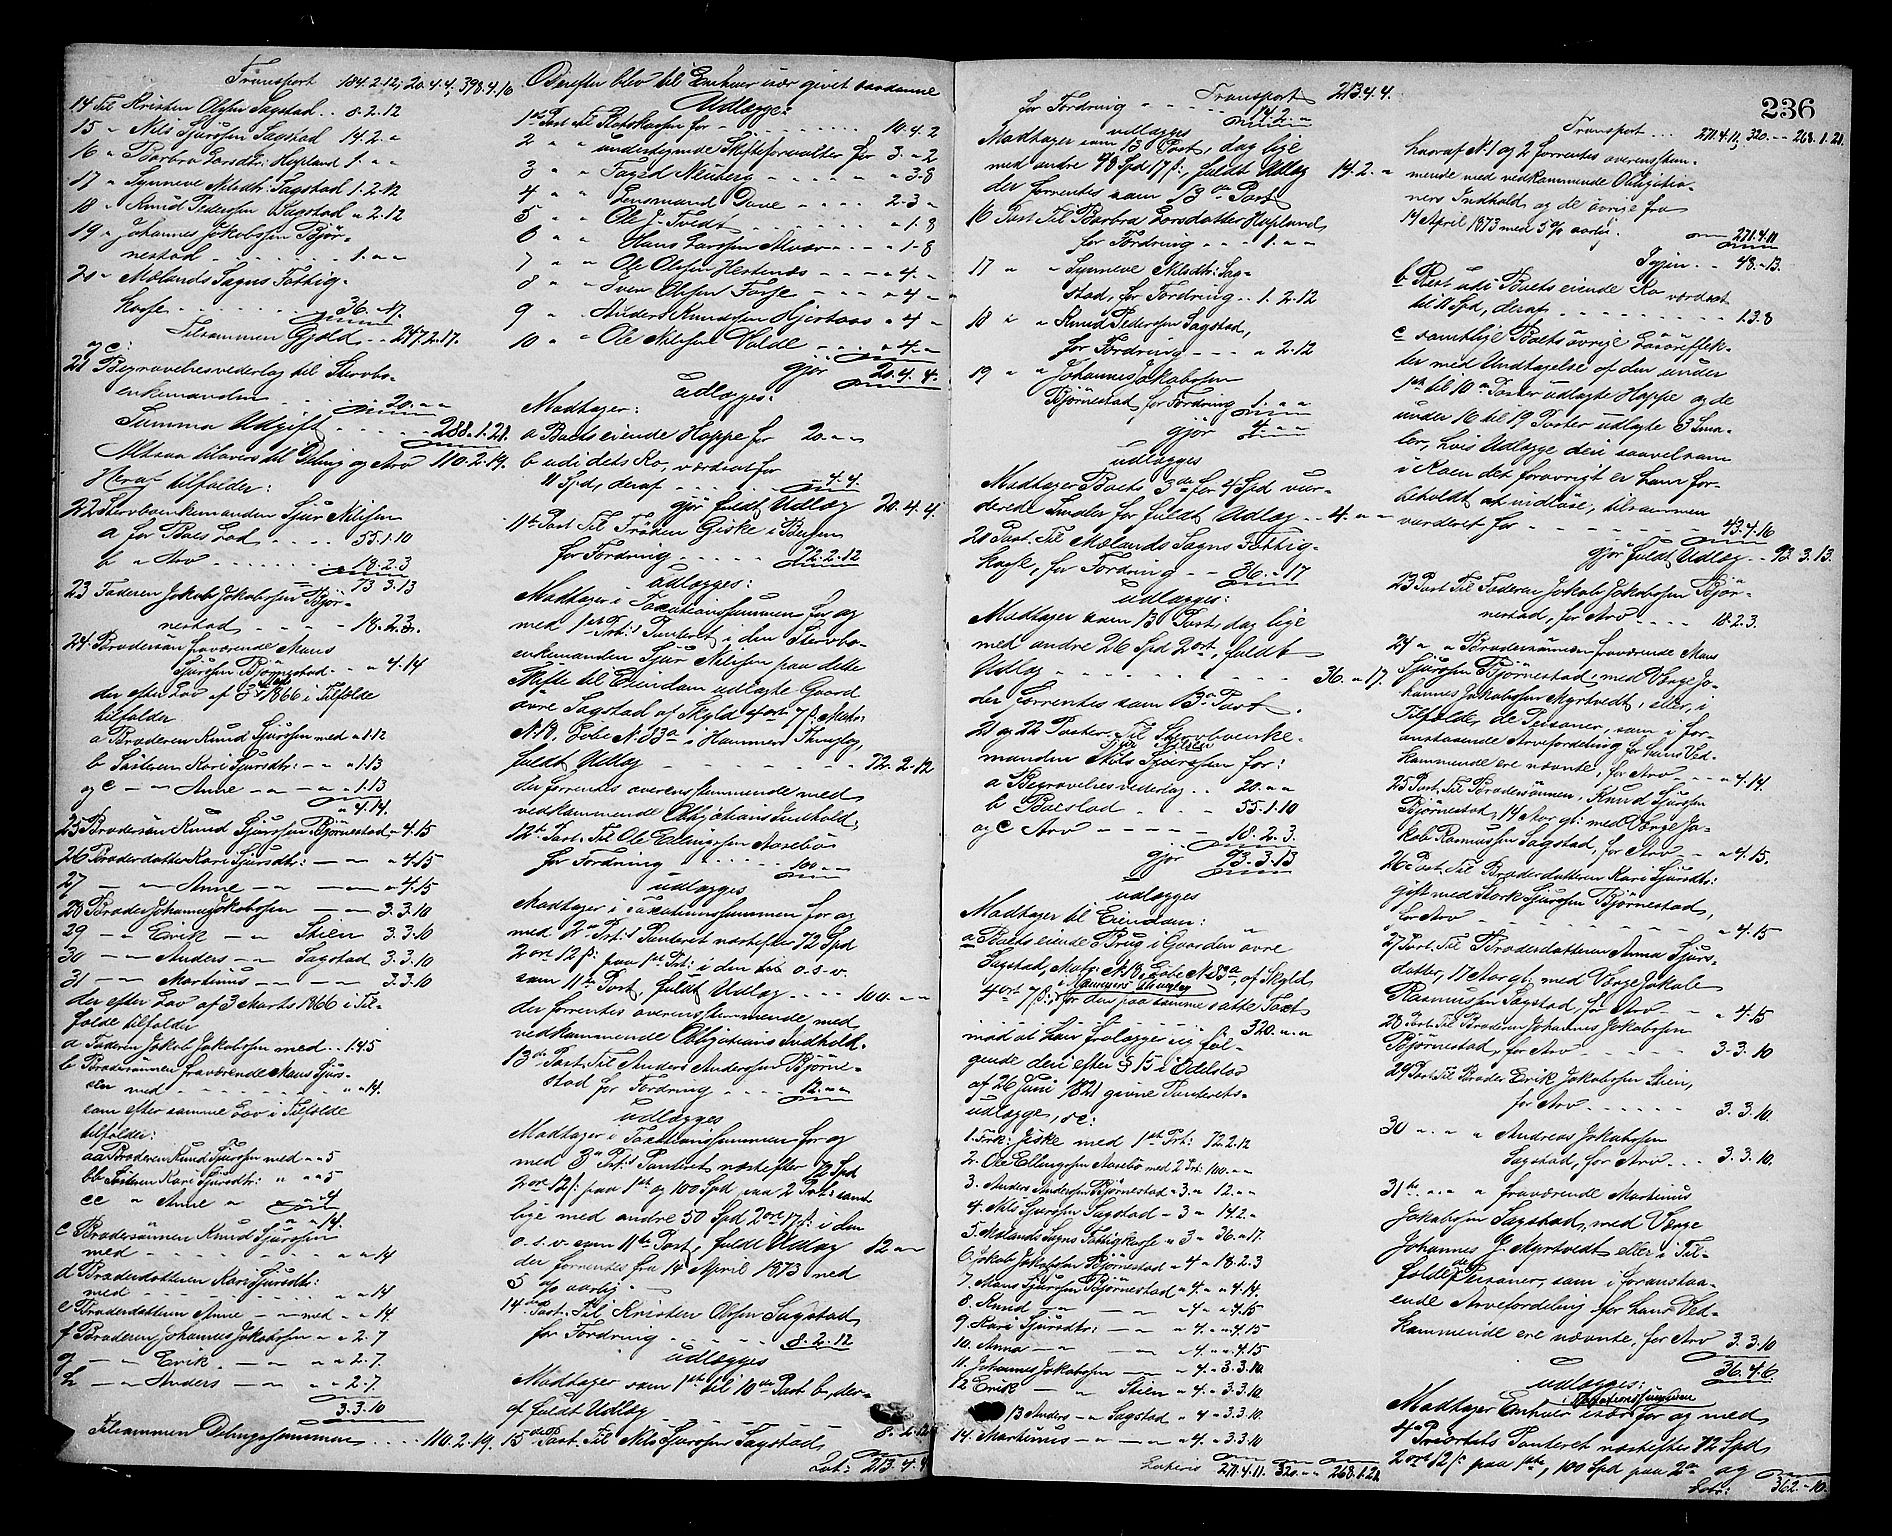 Transport 184.2.12; 20.4.4; 398.4.10
14 Til Kristen Olsen Sagstad .. 8.2.12
15 " Nils Sjursen Sagstad 14.2."
16 " Barbra Larsdtr: Hopland 1." "
17 " Synneve Nilsdtr: Sagstad 1.2.12
18 " Knud Pedersen Sagstad " 2.12
19 " Johannes Jakobsen Bjør-
nestad . . . . . 1." "
20 " Mælands Sogns Fattig-
kasse . . . . . 36. " 17.
Tilsammen Gjeld . . 247.2.17.
og c:
21 Begravelsesvederlag til Stervbo-
enkemanden . . . . 20. " "
Summa Udgift . . . . 288.1.21.
Altsaa tilovers til Deling og Arv 110.2.19.
Heraf tilfalder:
22 Stervboenkemanden Sjur Nilsen
a for Boes Lod . . . . 55.1.10
b " Arv . . . . . 18.2.3
73 3.13
23 Faderen Jakob Jakobsen Bjør-
nestad . . . . 18.2.3.
24 Brodersøn fraværende Mons
Sjursen Bjørnestad . . " 4.14
der efter Lov af 3 1866 i Tilfælde
tilfalder
a Broderen Knud Sjursen med " 1.12
b Søsteren Kari Sjursdtr: — " 1.13
og c — " Anne — " — " 1.13
" 4.14.
25 Brodersøn Knud Sjursen Bjørnestad " 4.15
26 Broderdatter Kari Sjursdtr: — " " 4.15
27 — " — Anne — " — — " 4.15
28 Broder Johannes Jakobsen — — 3.3.10
29 — " Erik — " Stien 3.3.10
30 — " Anders — " Sagstad 3.3.10
31 — " Martinus — " — 3.3.10
der efter Lov af 3 Marts 1866 i Til-
fælde tilfalder
a Faderen Jakob Jakobsen med . . 1.4.5
b Brodersønnen fraværende Mons Sjur-
sen med . . . . . " " 14.
som efter samme Lov i Tilfælde
tilfalder:
aa Broderen Knud Sjursen med " " 5
bb Søsteren Kari Sjursdtr: " " " 5
cc " Anne " " " 4
" " 14.
c Brodersønnen Knud Sjursen
med — — — — " " 14
d Broderdatteren Kari Sjursdtr:
med — — — — " " 14
e Broderdatteren Anne — " — med — " " 14.
f Broderen Johannes Jakobsen " " 2.7
g — " — Erik — " — " " 2.7.
h — " — Anders — " — " " 2.7.
3.3.10
Tilsammen Delingssummen . . . . 110.2.19.
Derefter blev til Enhver især givet saadanne
Udlægge:
1ste Post Til Statskassen for — . . . . . 10.4.2
2 " " undertegnede Skifteforvalter for 3. " 2
3 " " Foged Neuberg — — — — " " 3.8
4 " " Lensmand Dave . . . . 2.3 "
5 " " Ole J. Tvedt — — — " 1.8
6 " " Hans Larsen — — — " 1.8
7 " " Ole Olsen Hestenæs — — — " 4. "
8 " " Sven Olsen Fosse — — — " 4 "
9 " " Anders Knudsen Hjertaas " 4 "
10 " " Ole Nilsen Volde — — " 4. "
gjør 20.4.4.
udlægges:
Modtager:
a Boets eiende Hoppe for 20. " "
b udi dets Ko, værdsat for
11 Spd, deraf . . . . " 4.4.
gjør fuldt Udlæg 20.4.4.
11te Post Til Frøken Giske i Bergen
for Fordring — . . . . . 72.2.12
udlægges:
Modtager i Taxationssummen for og
med 1ste Prt:s Panteret i den Stervbo-
enkemanden Sjur Nilsen paa dette
Skifte til Eiendom udlagte Gaard
øvre Sagstad af Skyld 4 ort 7 ß. Matr:
N. 18. Løbe N. 83a i Hammers Thinglag,
fuldt Udlæg — — — — — 72.2.12
der forrentes overensstemmende med
vedkommende Obligations Indhold,
12te Post. Til Ole Ellingsen Aasebø
for Fordring . . . . . 100 " "
udlægges
Modtager i Taxationssummen for og
med 2den Prt:s Panteret næstefter 72 Spd
2 ort 12 ß: paa 1ste Prt: i den o.s.v.
som 11te Post, fuldt Udlæg . . . 100. " "
der forrentes overensstemmende med
vedkommende Obligations Indhold.
13de Post. Til Anders Andersen Bjørne-
stad for Fordring . . . . 12. " "
udlægges
Modtager i Taxationssummen for og
med 3die Prt:s Panteret næstefter 72 Spd
2 ort 12 ß: paa 1ste og 100 Spd paa 2 Prt: samt
lige med andre 50 Spd 2 ort 17 ß: i den
o.s.v. som 11te Post, fuldt Udlæg 12 " "
der forrentes fra 14 April 1873 med
5 % aarlig. —
14de Post. Til Kristen Olsen Sagstad
for Fordring . . . . . 8.2.12
udlægges
Modtager som 1ste til 10de Post b, der-
af fuldt Udlæg 8.2.12
15de Post. Til Nils Sjursen Sagstad
Lat: 213.4.4
236
Transport 213.4.4.
for Fordring — — — — 14.2. "
udlægges
Modtager som 13 Post, dog lige
med andre 48 Spd 17 ß., fuldt Udlæg 14.2. "
der forrentes som 13de Post
16 Post Til Barbra Larsdatter Hopland
for Fordring . . . 1. " "
17 " " Synneve Nilsdtr: Sag-
stad, for Fordring . . 1.2.12
18 " " Knud Pedersen Sagstad,
for Fordring — — — " 2.12
19 " " Johannes Jakobsen
Bjørnestad, for Fordring 1. " "
gjør 4. " "
udlægges
Modtager Boets 3de for 4 Spd vur-
derede Smaler for fuldt Udlæg . . 4. " "
20 Post. Til Mælands Sogns Fattig-
kasse, for Fordring — — 36. " 17
udlægges:
Modtager som 13 Post, dog lige
med andre 26 Spd 2 ort, fuldt
Udlæg — — — — — — 36. " 17.
der forrentes som 13 Post.
21 og 22 Poster. Til Stervboenke-
Sjur Nilsen
manden Nils Sjursen for:
a Begravelsesvederlag . . 20. " "
b Boeslod . . . . 55.1.10
og c Arv — — — — 18.2.3.
gjør 93.3.13
udlægges
Modtager til Eiendom:
a Boets eiende Brug i Gaarden øvre
Sagstad, Matr: N. 18, Løbe N. 83a, af Skyld
i Hammers Thinglag
4 ort 7 ß:, for den paa samme satte Taxt
320. " "
mod at han frelægge sig føl-
gende deri efter § 15 i Odelslov
af 26 Juni 1821 givne Panterets-
udlægge, sc:
1. Frk: Giske med 1ste Prt: 72.2.12
2. Ole Ellingsen Aasebø med 2 Prt: 100. " "
3. Anders Andersen Bjørnestad " 3. " 12. " "
4. Nils Sjursen Sagstad — 3 " 14.2. "
5. Mælands Sogns Fattigkasse " 3 " 36. " 17.
6. Jakob Jakobsen Bjørnestad " 4 " 18.2.3
7. Mons Sjursen Bjørnestad " 4. " " 4.14.
8. Knud — " — — " 4 " " 4.15
9. Kari Sjursdtr: — " — " 4. " " 4.15
10. Anna — " — — " 4. " " 4.15
11. Johannes Jakobsen — " 4. " 3.3.10.
12 Erik — " — Stien " 4. " 3.3.10
13 Anders — " Sagstad " 4 " 3.3.10.
14. Martinus — " — " 4. " 3.3.10
Lateris 271.4.11. 320. " " 268.1.21.
Transport . . . 271.4.11; 320. " " 268.1.21.
hvoraf N. 1 og 2 forrentes overensstem-
mende med vedkommende Obligatio-
ners Indhold og de øvrige fra
14 April 1873 med 5 % aarlig.
271.4.11
Igjen . . 48. " 13.
b Rest udi Boets eiende Ko værdsat
til 11 Spd, deraf . . . . . . 1.3.8
c samtlige Boets øvrige Løsøreeffek-
ter med Undtagelse af den under
1ste til 10de Poster udlagte Hoppe og de
under 16 til 19 Poster udlagte 3 Sma-
ler, hvis Udlægge deri saavelsom
i Koen det forøvrigt er ham for-
beholdt at indløse, tilsammen
vurderet for — — — — — 43.4.16
gjør fuldt Udlæg . . 93.3.13.
23 Post Til Faderen Jakob Jakobsen Bjør-
nestad, for Arv . . . . 18.2.3.
24 " " Brodersønnen fraværende Mons
Sjursen Bjørnestad, med Værge Jo-
hannes Jakobsen Myrtvedt, eller, i
Tilfælde, de Personer, som i for-
anstaaende Arvefordeling for hans Ved-
kommende ere nævnte, for Arv — — " 4.14.
25 Post. Til Brodersønnen, Knud Sjursen
Bjørnestad, 14 Aar gl: med Værge Ja-
kob Rasmussen Sagstad, for Arv — " 4.15.
26 Post. Til Broderdatteren Kari Sjursdtr:
gift med Stork Sjursen Bjørnestad,
for Arv — — — — — " 4.15
27 Post. Til Broderdatteren Anna Sjurs-
datter, 17 Aar gl, med Værge Jakob
Rasmussen Sagstad, for Arv — — " 4.15
28 Post. Til Broderen Johannes Jakobsen
Bjørnestad, for Arv — — — 3.3.10
29 Post Til Broder Erik Jakobsen Stien,
for Arv . . . . . . 3.3.10.
30 " " " Andreas Jakobsen
Sagstad, for Arv . . . 3.3.10.
31te " " " fraværende Martinus
Jakobsen Sagstad, med Værge
Johannes J. Myrtvedt eller i Til-
fælde de Personer, som i foranstaa-
ende Arvefordeling for hans Ved-
kommende ere nævnte, for Arv 3.3.10
36.4.6
udlægges:
i Taxationssummen
Modtager Enhver især for og med
4de Prioritets Panteret næstefter 72 Spd
2 ort 12 ß: paa 1ste, 100 Spd paa 2den og
Latr: 362. " 10.